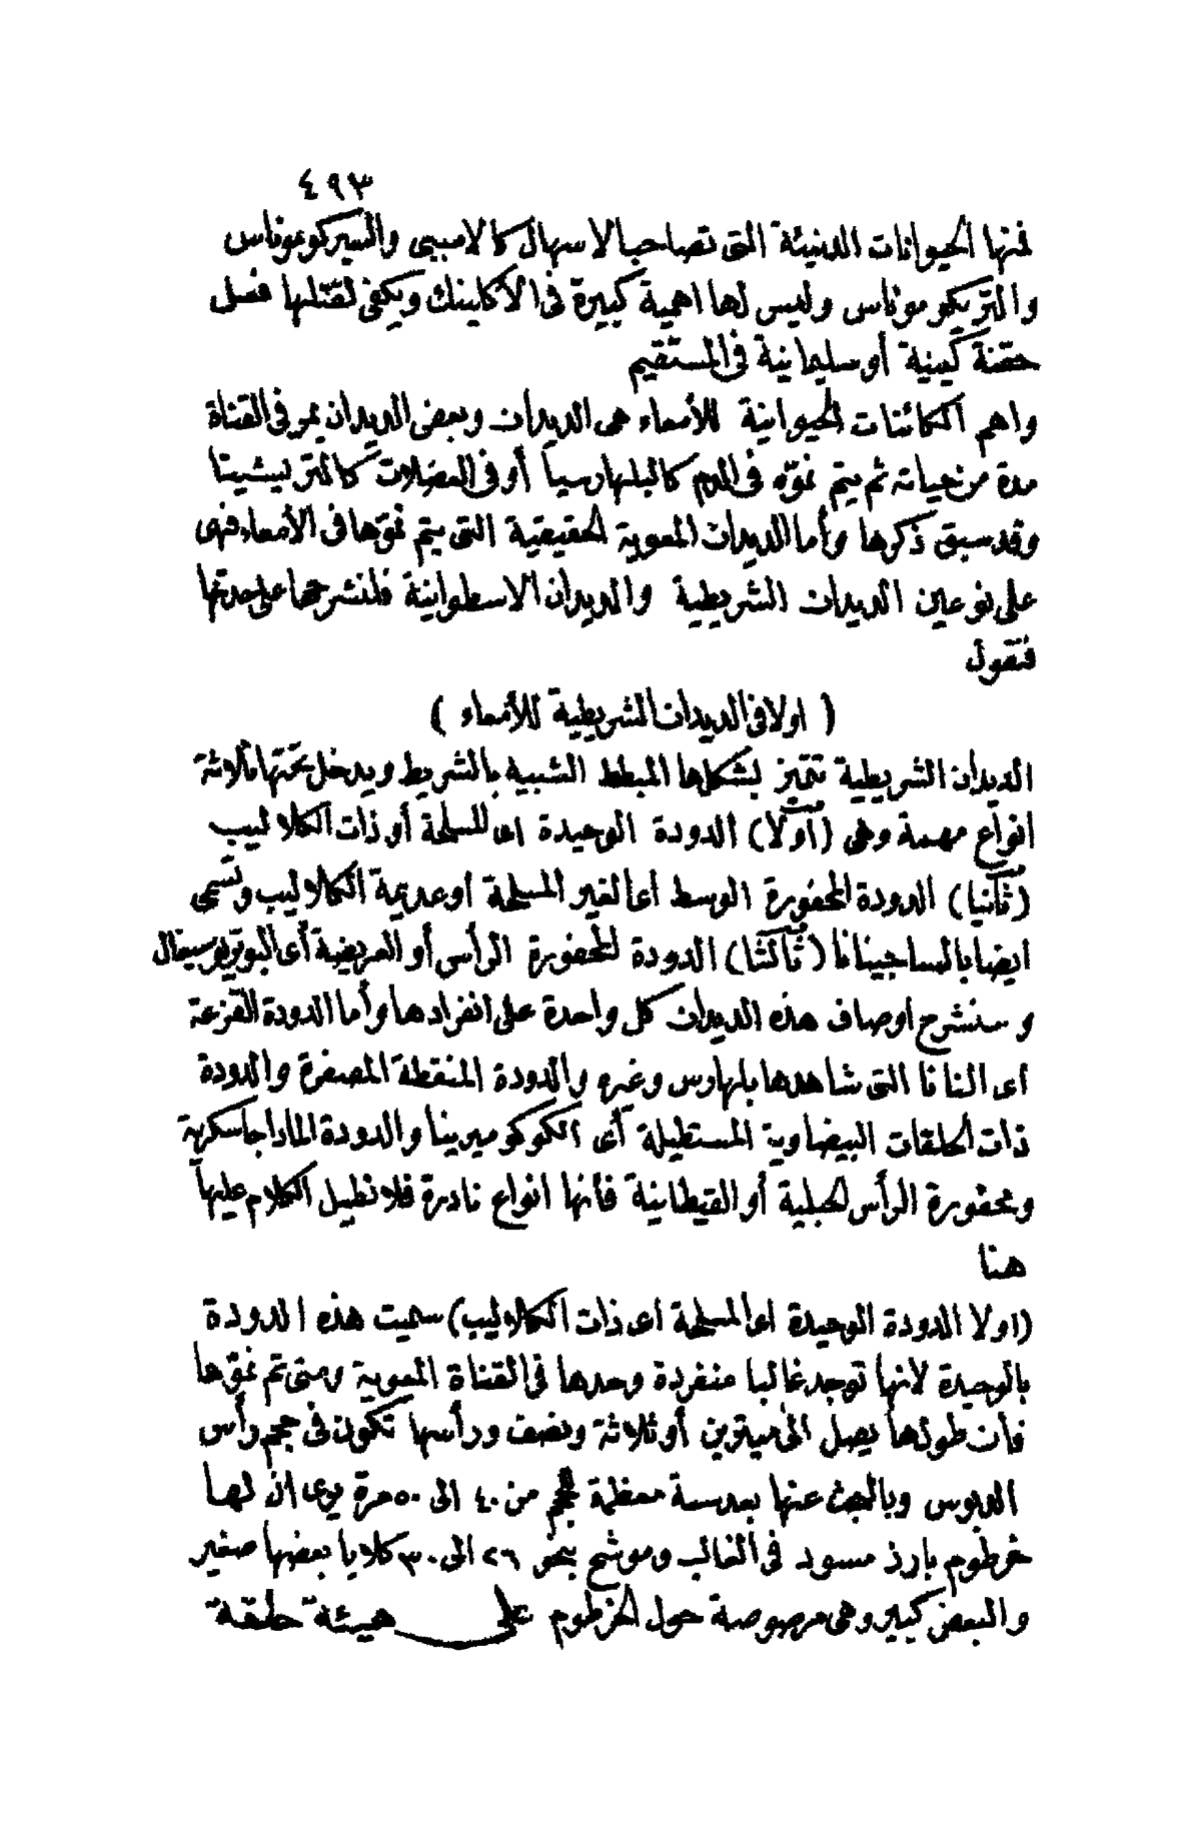 ٤٩٣
فمنها الحيوانات الدنيئة التى تصاحب الاسهال كالامبيى والسيركوموناس
والتريكوموناس وليس لها اهمية كبيرة فى الاكلينك ويكفى لقتلها فعل
حقنة كينية أو سليمانية فى المستقيم
واهم الكائنات الحيوانية للأمعاء هى الديدان وبعض الديدان يمر فى القناة
مدة من حياته ثم يتم نموّه فى الدم كالبلهارسيا أو فى العضلات كالتريشينا
وقد سبق ذكرها وأما الديدان المعوية الحقيقية التى يتم نموّها فى الأمعاء فهى
على نوعين الديدان الشريطية والديدان الاسطوانية فلنشرحها على حدتها
فنقول
( اولا فى الديدان الشريطية للأمعاء )
الديدان الشريطية تتميز بشكلها المبطط الشبيه بالشريط ويدخل تحتها ثلاثة
انواع مهمة وهى (أولا) الدودة الوحيدة اى المسلحة أو ذات الكلاليب
(ثانيا) الدودة المحفورة الوسط اى الغير المسلحة او عديمة الكلاليب وتسمى
ايضا بالساجيناتا (ثالثا) الدودة المحفورة الرأس أو العريضة أى البوتريوسيفال
وسنشرح اوصاف هذه الديدان كل واحدة على انفرادها وأما الدودة القزعة
اى النانا التى شاهدها بلهارس وغيره والدودة المنقطة المصفرة والدودة
ذات الحلقات البيضاوية المستطيلة أى الكوكوميرينا والدودة الماداجاسكرية
ومحفورة الرأس الحبلية أو القيطانية فأنها انواع نادرة فلا نطيل الكلام عليها
هنا
(اولا الدودة الوحيدة اى المسلحة اى ذات الكلاليب) سميت هذه الدودة
بالوحيدة لانها توجد غالبا منفردة وحدها فى القناة المعوية ومتى تم نموّها
فأن طولها يصل الى ميترين أو ثلاثة ونصف ورأسها تكون فى حجم رأس
الدبوس وبالبحث عنها بعدسة معظمة للحجم من ٤٠ الى ٥٠ مرة يرى ان لها
خرطوم بارز مسود فى الغالب وموشح بنحو ٢٦ الى ٣٠ كلابا بعضها صغير
والبعض كبير وهى مرصوصة حول الخرطوم على هيئة حلقة